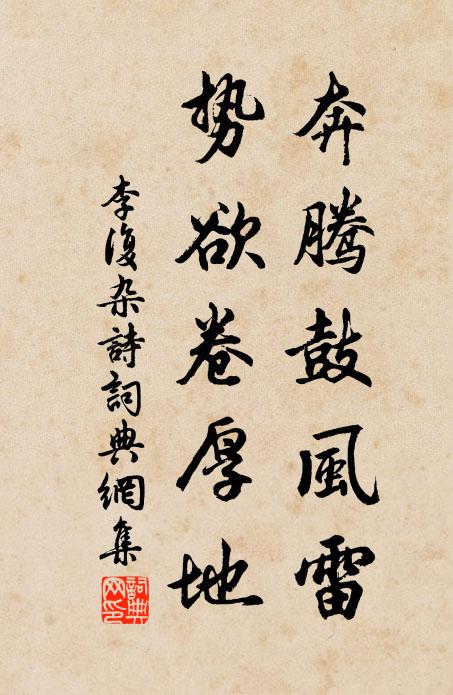 奔腾鼓風雷
势欲卷厚地
李復杂詩詞典網集
詞典网印